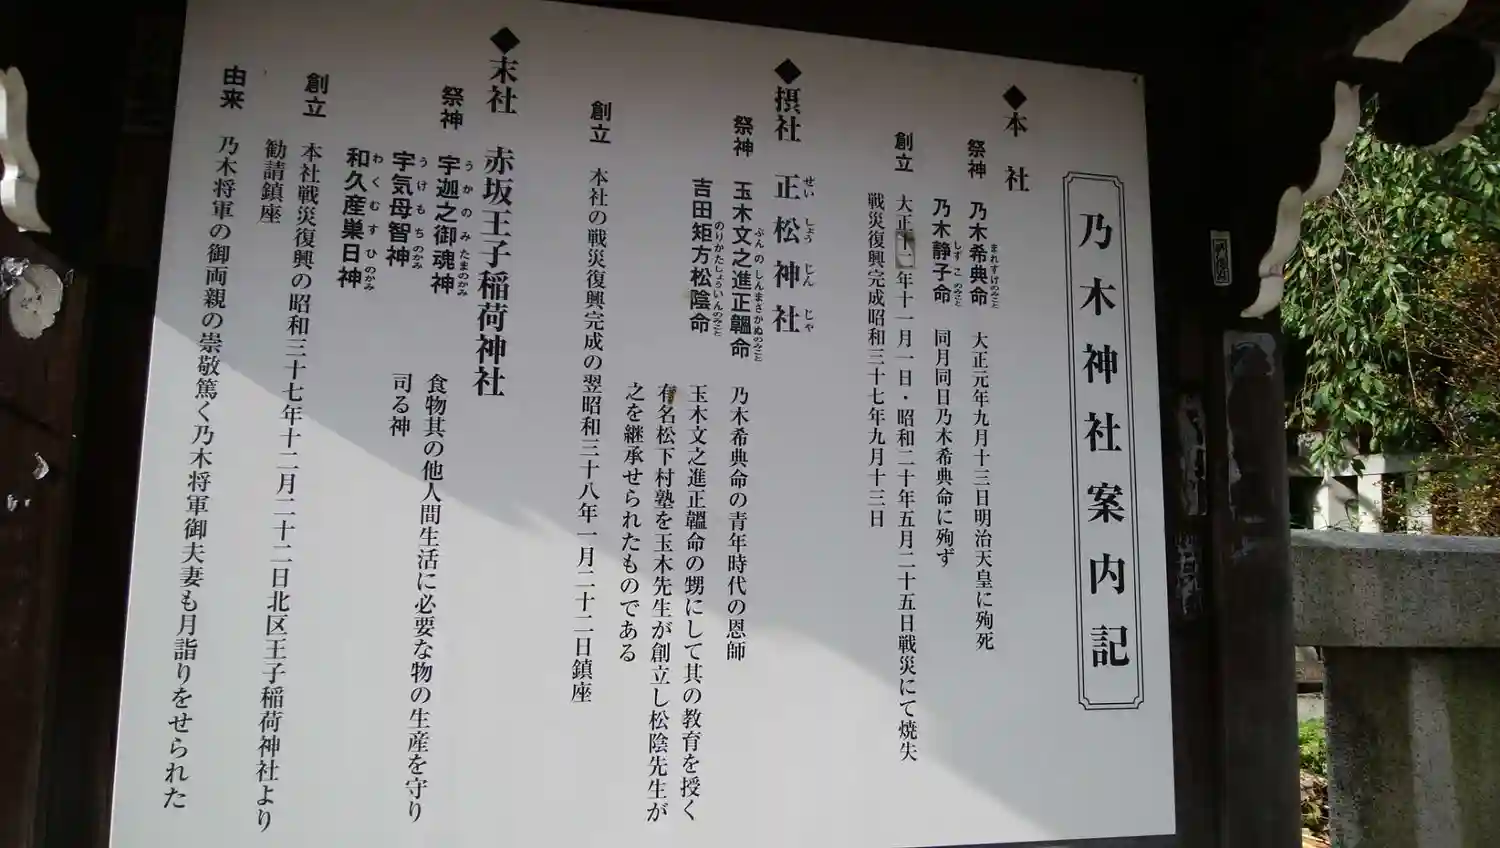 乃木神社案内記
◆本社
祭神 乃木希典命 大正元年九月十三日明治天皇に殉死
まれすけのみこと
乃木静子命 同月同日乃木希典命に殉ず
しずこのみこと
創立 大正十二年十一月一日・昭和二十年五月二十五日戦災にて焼失
戦災復興完成昭和三十七年九月十三日
◆摂社 正松神社
せいしょうじんじゃ
祭神 玉木文之進正韞命 乃木希典命の青年時代の恩師
ぶんのしんまさかぬのみこと
吉田矩方松陰命 玉木文之進正韞命の甥にして其の教育を授く
のりかたしょういんのみこと
有名松下村塾を玉木先生が創立し松陰先生が
之を継承せられたものである
創立 本社の戦災復興完成の翌昭和三十八年一月二十二日鎮座
◆末社 赤坂王子稲荷神社
祭神 宇迦之御魂神 食物其の他人間生活に必要な物の生産を守り
うかのみたまのかみ
司る神
宇気母智神
うけもちのかみ
和久産巣日神
わくむすひのかみ
創立 本社戦災復興の昭和三十七年十二月二十二日北区王子稲荷神社より
勧請鎮座
由来 乃木将軍の御両親の崇敬篤く乃木将軍御夫妻も月詣りをせられた